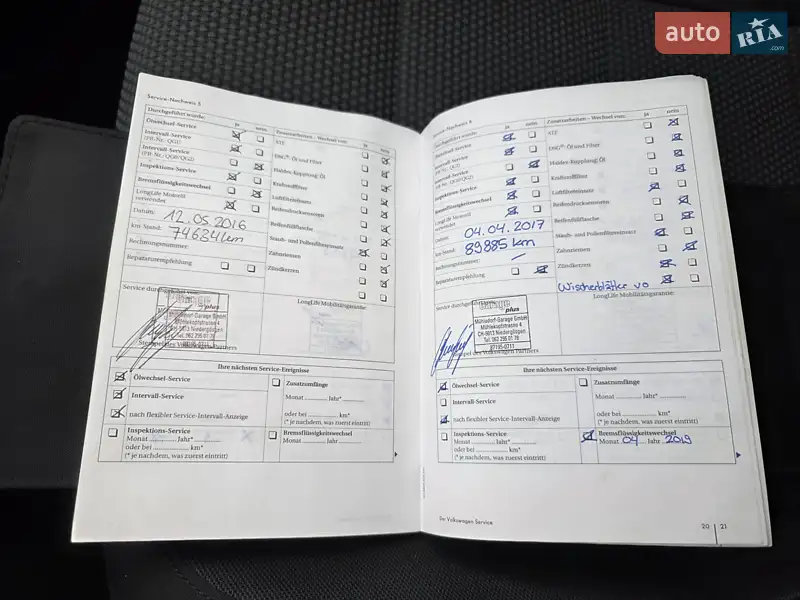 auto RIA.com
Service-Nachweis 5
Durchgeführt wurde: ja nein
Ölwechsel-Service
Intervall-Service
(PR-Nr./QG1)
Intervall-Service
(PR-Nr./QG0/QG2)
Inspektions-Service
Bremsflüssigkeitswechsel
LongLife Motoröl
verwendet
Datum: 12.05.2016
km Stand: 74634km
Rechnungsnummer:
Reparaturempfehlung
Zusatzarbeiten – Wechsel von: ja nein
ATF
DSG®: Öl und Filter
Haldex-Kupplung: Öl
Kraftstofffilter
Luftfiltereinsatz
Reifendrucksensoren
Reifenfüllflasche
Staub- und Pollenfiltereinsatz
Zahnriemen
Zündkerzen
Service durchgeführt von:
garage plus
Mühledorf-Garage GmbH
Mühlekopfstrasse 4
CH-5013 Niedergösgen
Tel. 062 295 01 76
Stempel des Volkswagen Partners
LongLife Mobilitätsgarantie:
Ihre nächsten Service-Ereignisse
Ölwechsel-Service
Intervall-Service
nach flexibler Service-Intervall-Anzeige
Inspektions-Service
Monat Jahr*
oder bei km*
(* je nachdem, was zuerst eintritt)
Zusatzumfänge
Monat Jahr*
oder bei km*
(* je nachdem, was zuerst eintritt)
Bremsflüssigkeitswechsel
Monat Jahr
Service-Nachweis 6
Durchgeführt wurde: ja nein
Ölwechsel-Service
Intervall-Service
(PR-Nr./QG1)
Intervall-Service
(PR-Nr./QG0/QG2)
Inspektions-Service
Bremsflüssigkeitswechsel
LongLife Motoröl
verwendet
Datum: 04.04.2017
km Stand: 89885 km
Rechnungsnummer: –
Reparaturempfehlung
Zusatzarbeiten – Wechsel von: ja nein
ATF
DSG®: Öl und Filter
Haldex-Kupplung: Öl
Kraftstofffilter
Luftfiltereinsatz
Reifendrucksensoren
Reifenfüllflasche
Staub- und Pollenfiltereinsatz
Zahnriemen
Zündkerzen
Wischerblätter vo
Service durchgeführt von:
garage plus
Mühledorf-Garage GmbH
Mühlekopfstrasse 4
CH-5013 Niedergösgen
Tel. 062 295 01 76
87195-0711
Stempel des Volkswagen Partners
LongLife Mobilitätsgarantie:
Ihre nächsten Service-Ereignisse
Ölwechsel-Service
Intervall-Service
nach flexibler Service-Intervall-Anzeige
Inspektions-Service
Monat Jahr*
oder bei km*
(* je nachdem, was zuerst eintritt)
Zusatzumfänge
Monat Jahr*
oder bei km*
(* je nachdem, was zuerst eintritt)
Bremsflüssigkeitswechsel
Monat 04 Jahr 2019
Der Volkswagen Service
20 21